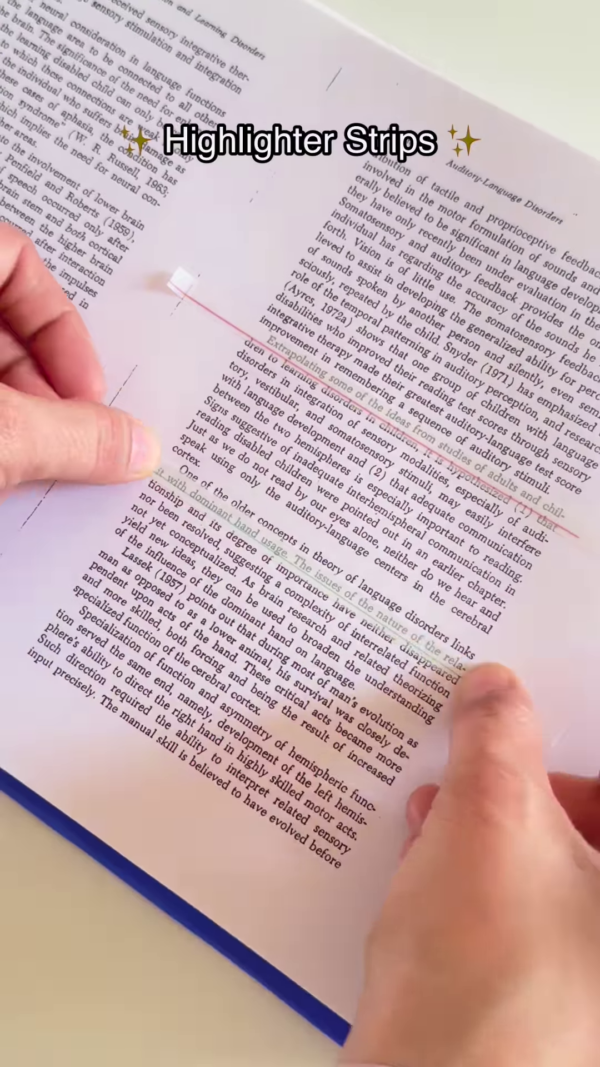 ✨ Highlighter Strips ✨
and Learning Disorders
received sensory integrative ther-
sensory stimulation and integration
neural consideration in language functions
the language area to be connected to all other
the brain. The significance of the need for
the learning disabled child can only be
to which those connections are
the individual who suffers damage as
these cases of aphasia, the condition has
tion syndrome" (W. R. Russell, 1963,
which implies the need for neural con-
her areas.
to the involvement of lower brain
Penfield and Roberts (1959),
of speech occurred only after
brain stem and both cortical
between the higher brain
after interaction
the impulses
ed in
Auditory-Language Disorders
tribution of tactile and proprioceptive feedback
involved in the motor formulation of sounds and
erally believed to be significant in language develop
they have only recently been under evaluation in the
Somatosensory and auditory feedback provides the on
individual has regarding the accuracy of the sounds he
forth. Vision is of little use. The somatosensory feedback
lieved to assist in developing the generalized ability for perc
of sounds spoken by another person and silently, even sem
sciously, repeated by the child. Snyder (1971) has emphasized
role of the temporal patterning in auditory perception, and resear
(Ayres, 1972a) shows that one group of children with language
disabilities who improved their reading test scores through sensory
integrative therapy made their greatest auditory-language test score
improvement in remembering a sequence of auditory stimuli.
Extrapolating some of the ideas from studies of adults and chil-
dren to learning disorders in children, it is hypothesized (1) that
disorders in integration of sensory modalities, especially of audi-
tory, vestibular, and somatosensory stimuli, may easily interfere
with language development and (2) that adequate communication
between the two hemispheres is especially important to reading.
Signs suggestive of inadequate interhemispheral communication in
reading disabled children were pointed out in an earlier chapter.
Just as we do not read by our eyes alone, neither do we hear and
speak using only the auditory-language centers in the cerebral
cortex.
One of the older concepts in theory of language disorders links
with dominant hand usage. The issues of the nature of the rela-
tionship and its degree of importance have neither disappeared
nor been resolved, suggesting a complexity of interrelated function
not yet conceptualized. As brain research and related theorizing
yield new ideas, they can be used to broaden the understanding
of the influence of the dominant hand on language.
Lassek (1957) points out that during most of man's evolution as
man as opposed to as a lower animal, his survival was closely de-
pendent upon acts of the hand. These critical acts became more
and more skilled, both forcing and being the result of increased
specialized function of the cerebral cortex.
Specialization of function and asymmetry of hemispheric func-
tion served the same end, namely, development of the left hemis-
phere's ability to direct the right hand in highly skilled motor acts.
Such direction required the ability to interpret related sensory
input precisely. The manual skill is believed to have evolved before